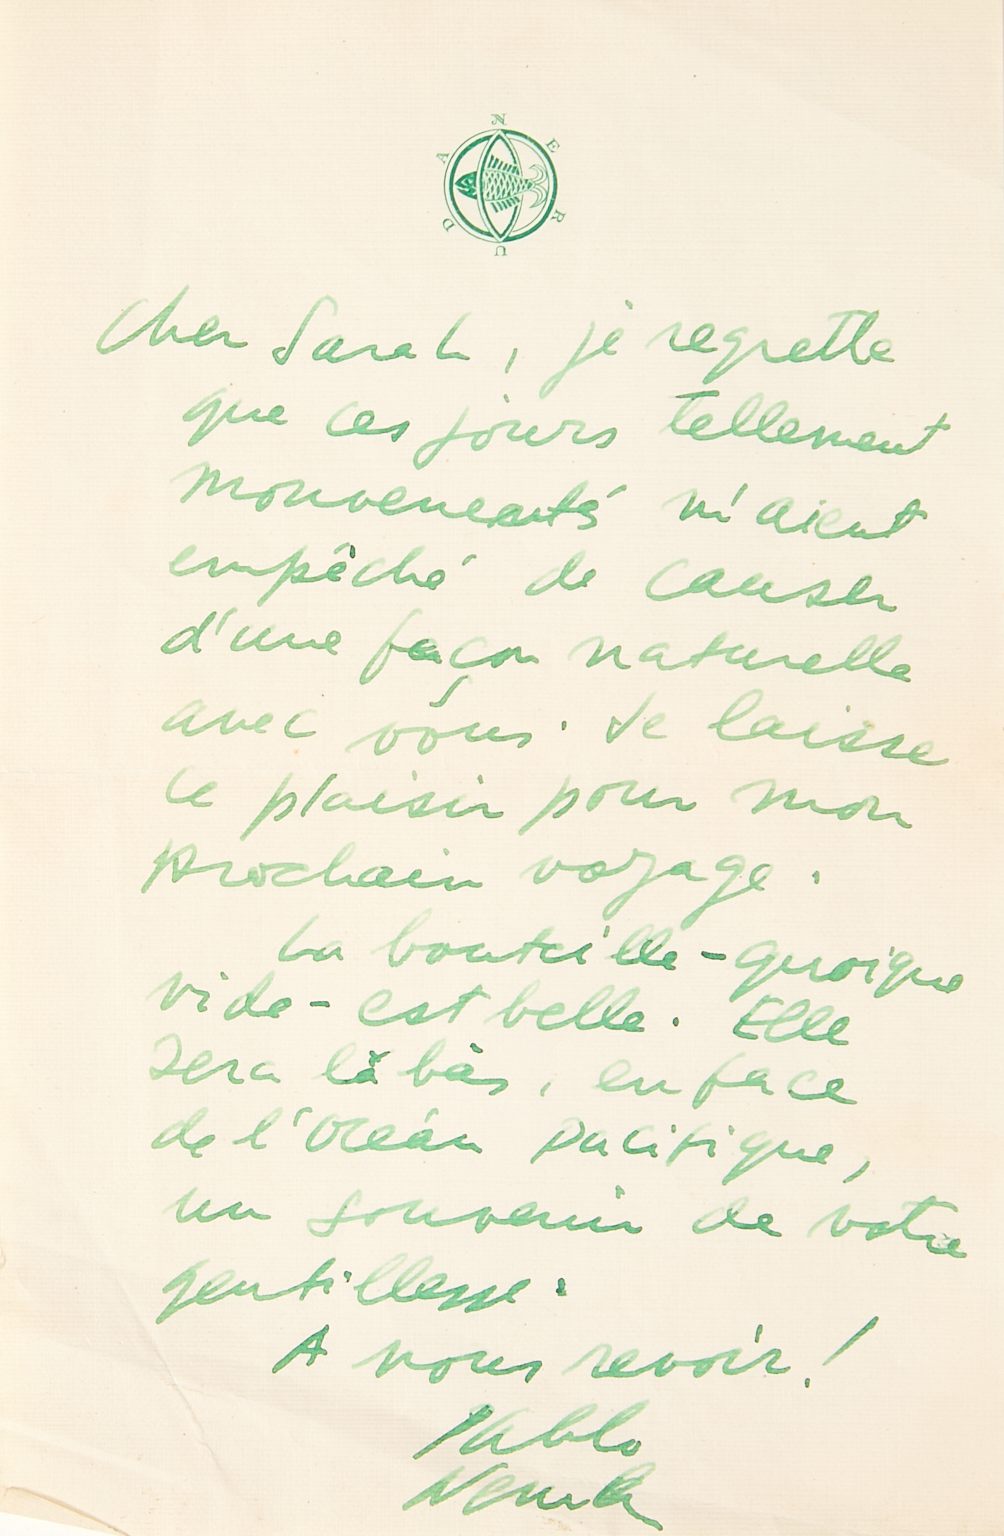 NERUDA
Cher Sarah, je regrette
que ces jours tellement
mouvementés m'aient
empêché de causer
d'une façon naturelle
avec vous. Je laisse
ce plaisir pour mon
prochain voyage.
La bouteille - quoique
vide - est belle. Elle
sera là bàs, en face
de l'Océan Pacifique,
un souvenir de votre
gentillesse.
A nous revoir!
Pablo
Neruda